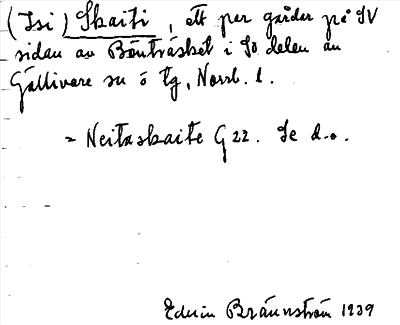 (Isi) Skaiti, ett par gårdar på SV
sidan av Bönträsket i SO delen av
Gällivare sn o tg, Norrb. l.
= Neitaskaite G 22. Se d.o.
Edvin Brännström 1939